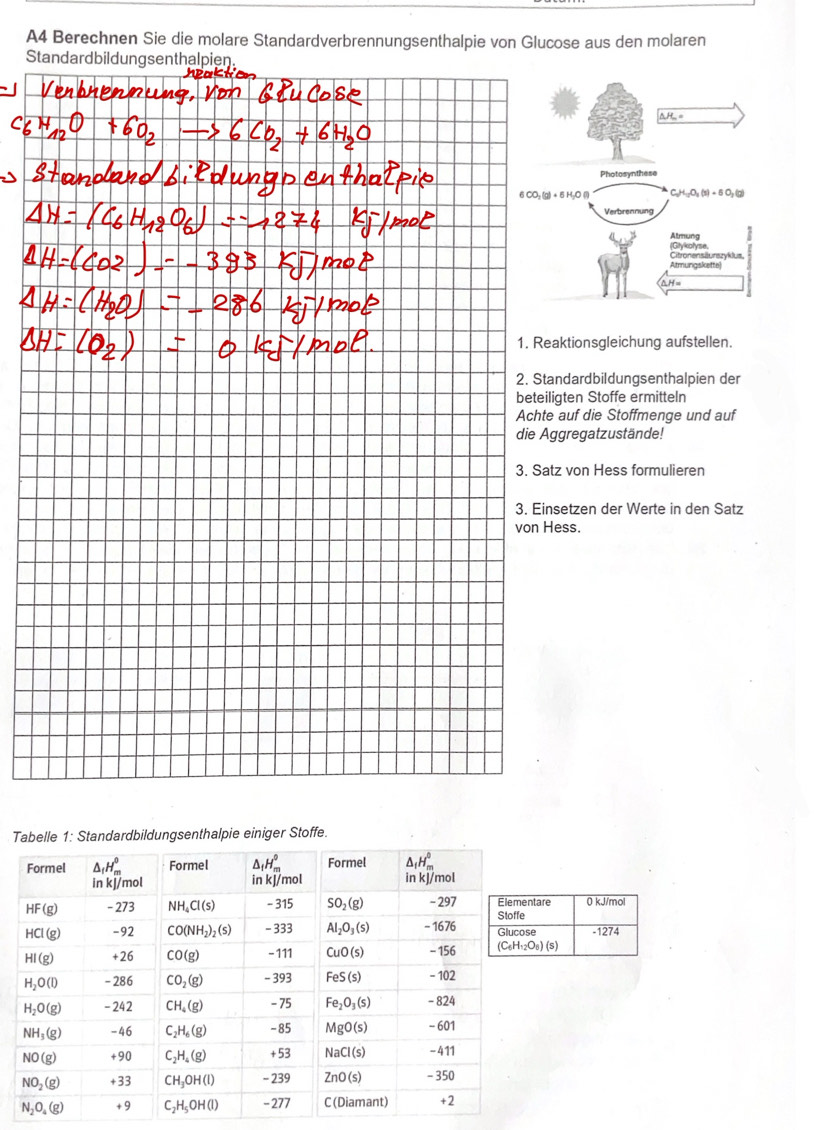 A4 Berechnen Sie die molare Standardverbrennungsenthalpie von Glucose aus den molaren
Standardbildungsenthalpien.
reaktion
→ Verbrennung, von Glucose
C₆H₁₂O + 6O₂ → 6CO₂ + 6H₂O
→ Standardbildungsenthalpie
ΔH = (C₆H₁₂O₆) = -1274 kJ/mol
ΔH = (CO2) = -393 kJ/mol
ΔH = (H₂O) = -286 kJ/mol
ΔH = (O₂) = 0 kJ/mol.
ΔHₘ =
Photosynthese
6 CO₂ (g) + 6 H₂O (l)
C₆H₁₂O₆ (s) + 6 O₂ (g)
Verbrennung
Atmung
(Glykolyse,
Citronensäurezyklus,
Atmungskette)
ΔᵣH =
1. Reaktionsgleichung aufstellen.
2. Standardbildungsenthalpien der
beteiligten Stoffe ermitteln
Achte auf die Stoffmenge und auf
die Aggregatzustände!
3. Satz von Hess formulieren
3. Einsetzen der Werte in den Satz
von Hess.
Tabelle 1: Standardbildungsenthalpie einiger Stoffe.
Formel ΔfH⁰ₘ in kJ/mol Formel ΔfH⁰ₘ in kJ/mol Formel ΔfH⁰ₘ in kJ/mol
HF(g) -273 NH₄Cl(s) -315 SO₂(g) -297
HCl(g) -92 CO(NH₂)₂(s) -333 Al₂O₃(s) -1676
HI(g) +26 CO(g) -111 CuO(s) -156
H₂O(l) -286 CO₂(g) -393 FeS(s) -102
H₂O(g) -242 CH₄(g) -75 Fe₂O₃(s) -824
NH₃(g) -46 C₂H₆(g) -85 MgO(s) -601
NO(g) +90 C₂H₄(g) +53 NaCl(s) -411
NO₂(g) +33 CH₃OH(l) -239 ZnO(s) -350
N₂O₄(g) +9 C₂H₅OH(l) -277 C(Diamant) +2
Elementare Stoffe 0 kJ/mol
Glucose (C₆H₁₂O₆) (s) -1274